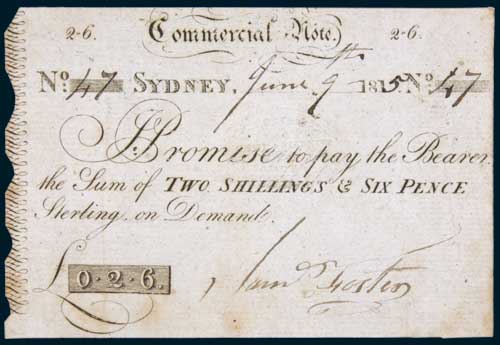 2-6. Commercial Note. 2-6.
No. 47 SYDNEY, June 9th 1815 No. 47
I PROMISE to pay the Bearer
the Sum of TWO SHILLINGS & SIX PENCE
Sterling on Demand.
£ 0·2·6. Foster